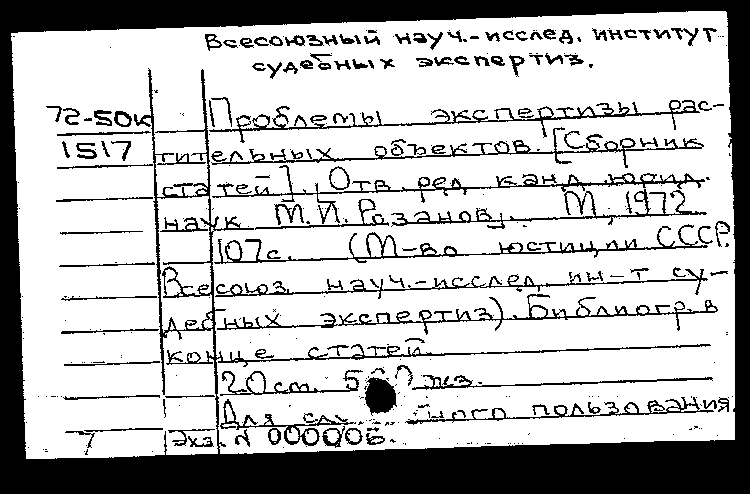 Всесоюзный науч.-исслед. институт
судебных экспертиз.
72-50к Проблемы экспертизы рас-
1517 тительных объектов. [Сборник
статей]. Отв. ред. канд. юрид.
наук М. И. Розанов. М., 1972
107с. (М-во юстиции СССР.
Всесоюз. науч.-исслед. ин-т су-
дебных экспертиз). Библиогр. в
конце статей.
20см. экз.
Для пользования.
7 Экз. N 000006.